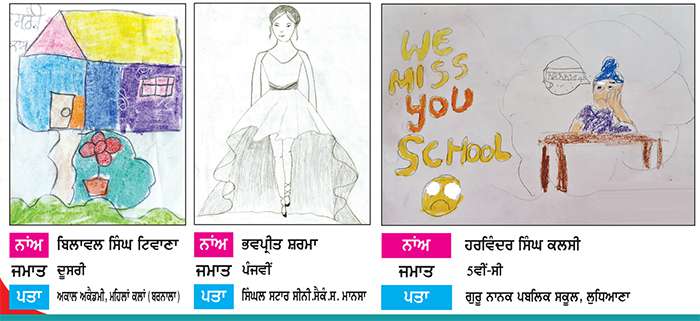 WE
MISS
YOU
SCHOOL
ਨਾਂਅ ਬਿਲਾਵਲ ਸਿੰਘ ਟਿਵਾਣਾ
ਜਮਾਤ ਦੂਸਰੀ
ਪਤਾ ਅਕਾਲ ਅਕੈਡਮੀ, ਮਹਿਲਾਂ ਕਲਾਂ (ਬਰਨਾਲਾ)
ਨਾਂਅ ਭਵਪ੍ਰੀਤ ਸ਼ਰਮਾ
ਜਮਾਤ ਪੰਜਵੀਂ
ਪਤਾ ਸਿੰਘਲ ਸਟਾਰ ਸੀਨੀ.ਸੈਕੰ.ਸ. ਮਾਨਸਾ
ਨਾਂਅ ਹਰਵਿੰਦਰ ਸਿੰਘ ਕਲਸੀ
ਜਮਾਤ 5ਵੀਂ-ਸੀ
ਪਤਾ ਗੁਰੂ ਨਾਨਕ ਪਬਲਿਕ ਸਕੂਲ, ਲੁਧਿਆਣਾ